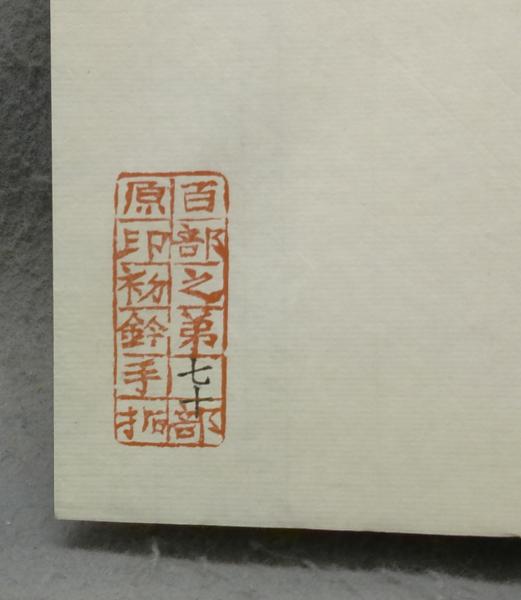 百部之第七十部
原印初鈐手拓